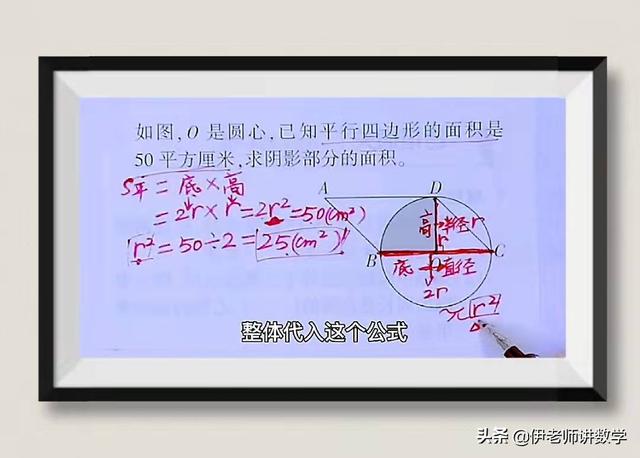 如图,O 是圆心,已知平行四边形的面积是
50 平方厘米,求阴影部分的面积。
S平 = 底 × 高
= 2r × r = 2r² = 50(cm²)
r² = 50÷2 = 25(cm²)
A
D
高
半径 r
r
B
C
底
直径
2r
πr²
整体代入这个公式
头条 @伊老师讲数学